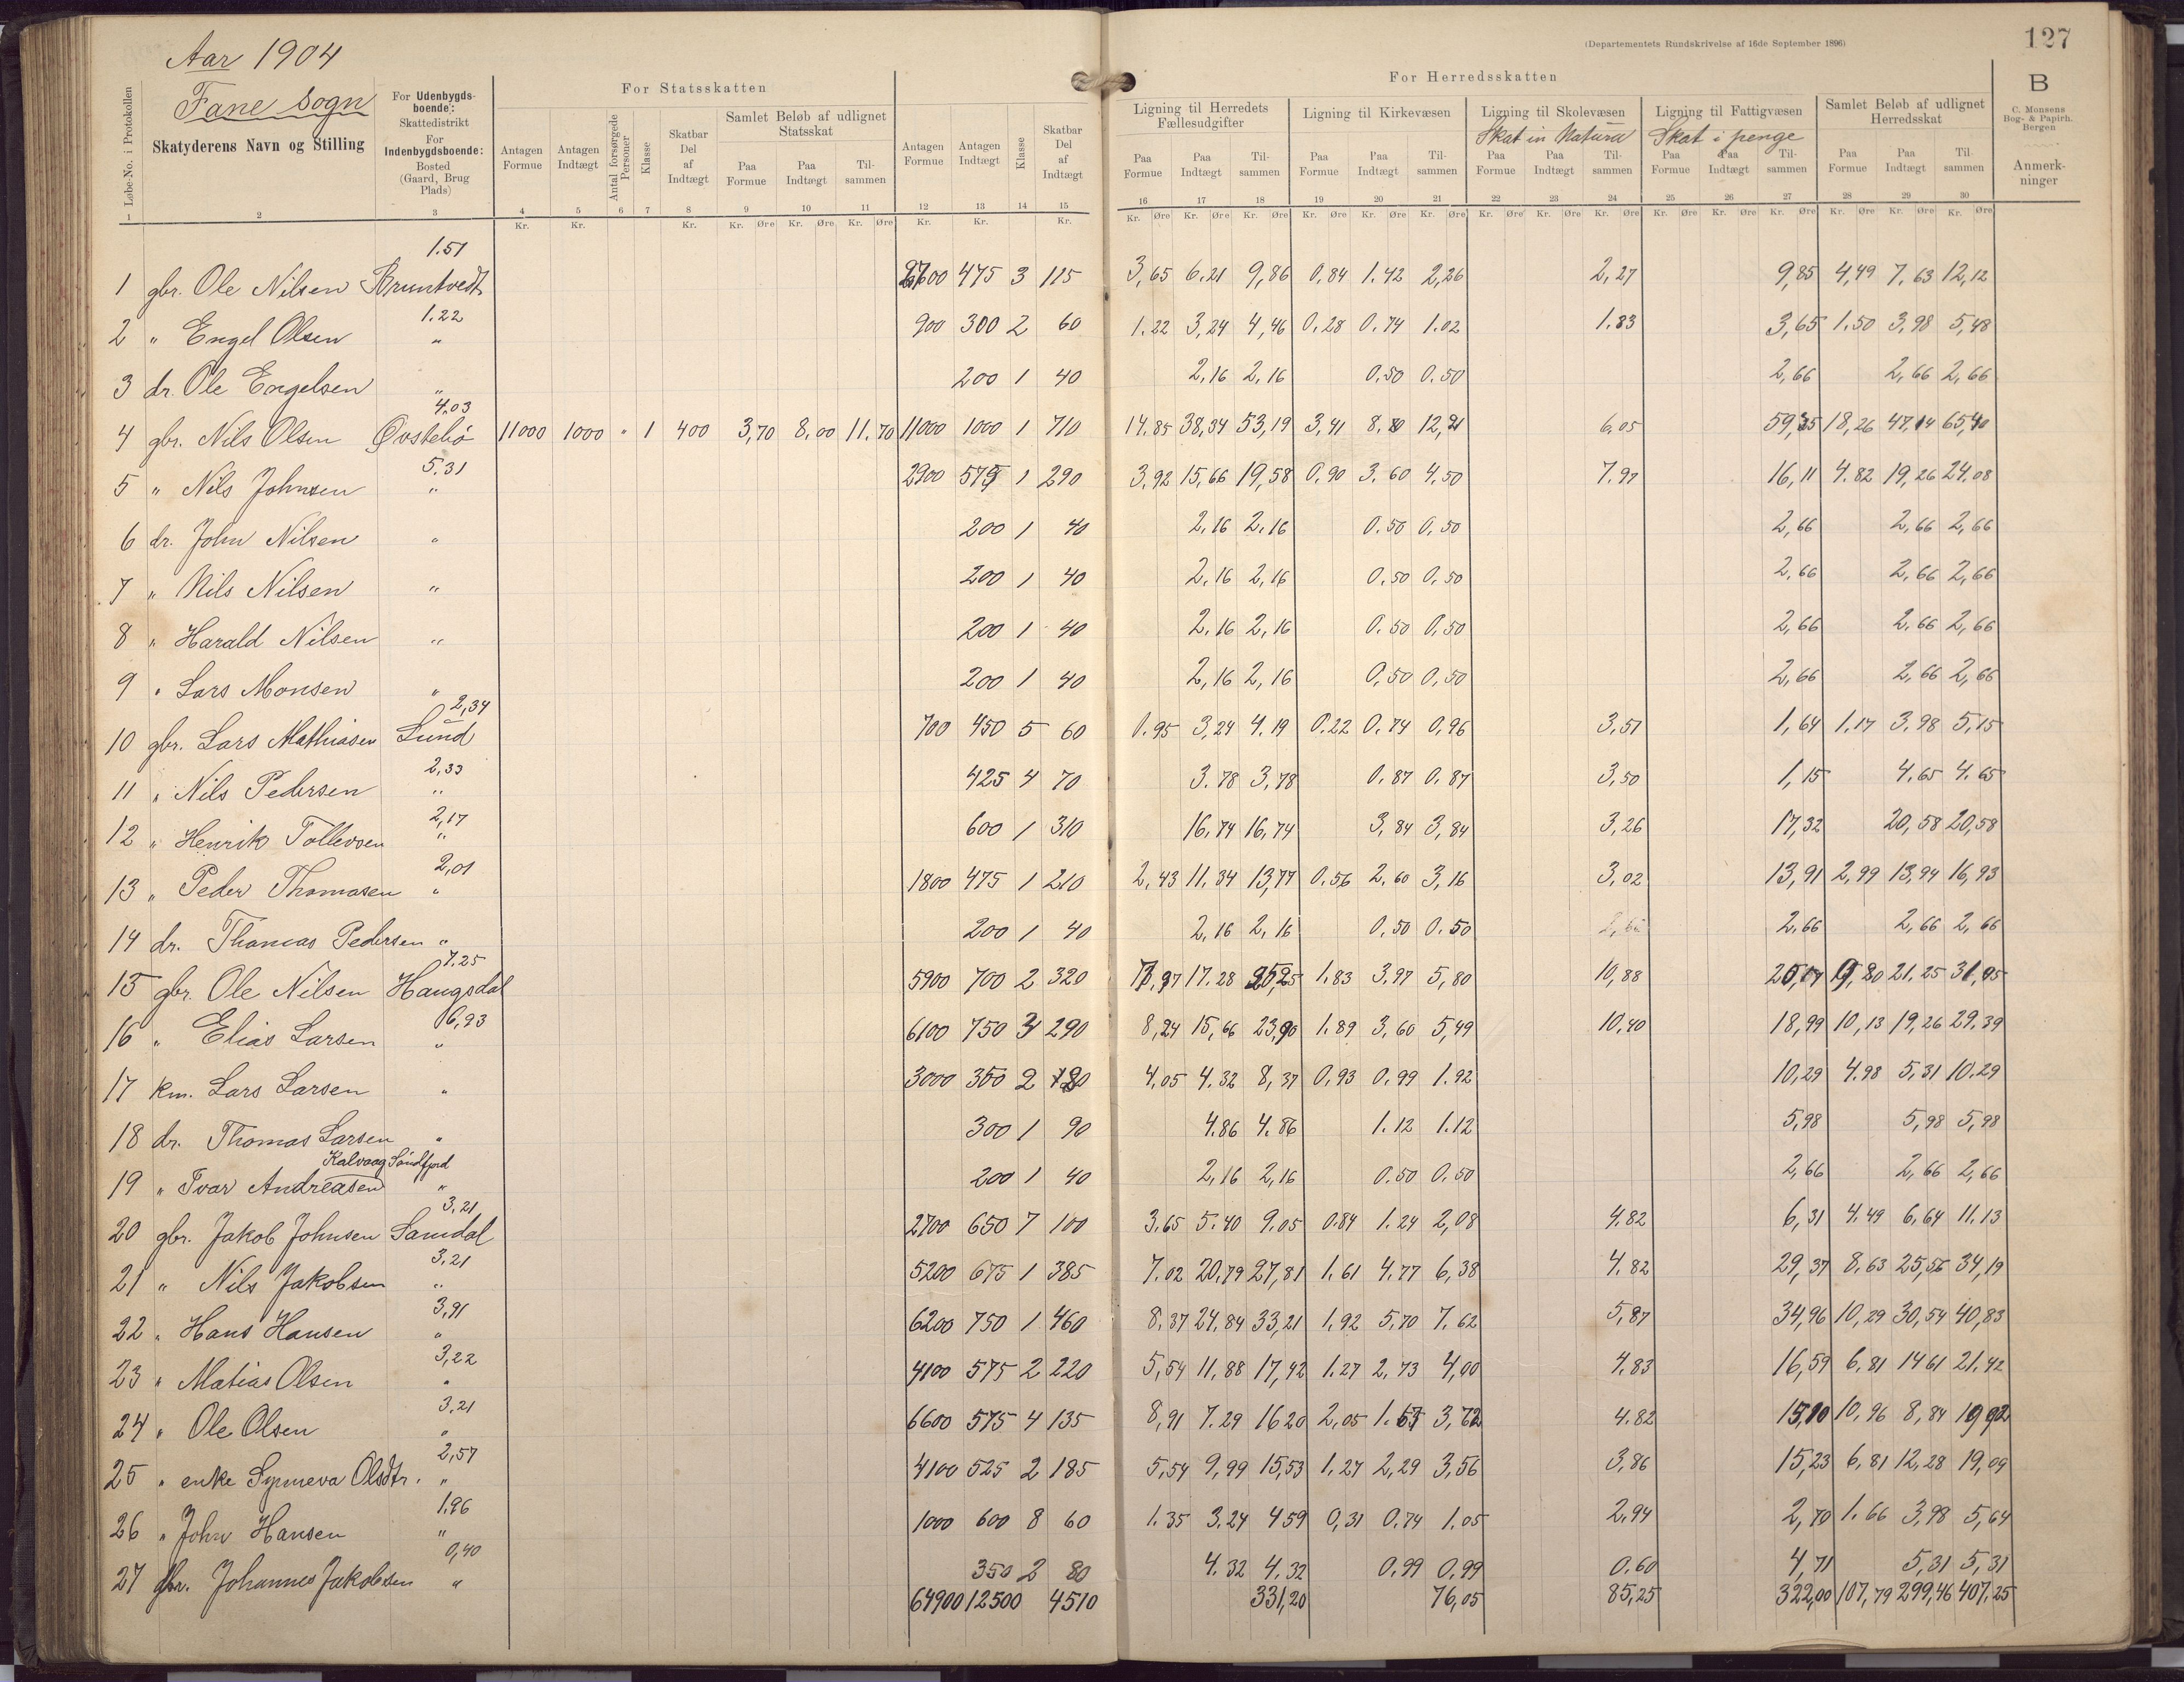 Aar 1904
Fane Sogn
(Departementets Rundskrivelse af 16de September 1896)
127
For Statsskatten
For Herredsskatten
B
C. Monsens
Bog- & Papirh.
Bergen
Løbe-No. i Protokollen
Skatyderens Navn og Stilling
For Udenbygds-
boende:
Skattedistrikt
For
Indenbygdsboende:
Bosted
(Gaard, Brug
Plads)
Antagen Formue
Antagen Indtægt
Antal forsørgede Personer
Klasse
Skatbar Del af Indtægt
Samlet Beløb af udlignet Statsskat
Paa Formue
Paa Indtægt
Til-sammen
Antagen Formue
Antagen Indtægt
Klasse
Skatbar Del af Indtægt
Ligning til Herredets Fællesudgifter
Paa Formue
Paa Indtægt
Til-sammen
Ligning til Kirkevæsen
Paa Formue
Paa Indtægt
Til-sammen
Ligning til Skolevæsen
Skat in Natura
Paa Formue
Paa Indtægt
Til-sammen
Ligning til Fattigvæsen
Skat i penge
Paa Formue
Paa Indtægt
Til-sammen
Samlet Beløb af udlignet Herredsskat
Paa Formue
Paa Indtægt
Til-sammen
Anmerk-ninger
1 2 3 4 5 6 7 8 9 10 11 12 13 14 15 16 17 18 19 20 21 22 23 24 25 26 27 28 29 30
Kr. Kr. Kr. Kr. Øre Kr. Øre Kr. Øre Kr. Kr. Kr. Kr. Øre Kr. Øre Kr. Øre Kr. Øre Kr. Øre Kr. Øre Kr. Øre Kr. Øre Kr. Øre Kr. Øre Kr. Øre Kr. Øre Kr. Øre Kr. Øre Kr. Øre
1.51
1 gbr. Ole Nilsen Bruntvedt 2700 475 3 115 3,65 6.21 9,86 0,84 1.42 2,26 2,27 9,85 4,49 7,63 12,12
1.22
2 " Engel Olsen " 900 300 2 60 1.22 3,24 4,46 0.28 0.74 1.02 1.83 3,65 1.50 3,98 5,48
3 dr. Ole Engelsen " 200 1 40 2,16 2,16 0.50 0.50 2,66 2,66 2,66
4.03
4 gbr. Nils Olsen Øvstebø 11000 1000 " 1 400 3,70 8,00 11.70 11000 1000 1 710 14.85 38,34 53,19 3,41 8.80 12,21 6,05 59,35 18,26 47,14 65,40
5.31
5 " Nils Johnsen " 2900 575 1 290 3,92 15,66 19,58 0,90 3.60 4,50 7.97 16,11 4.82 19,26 24.08
6 dr. John Nilsen " 200 1 40 2,16 2.16 0.50 0,50 2,66 2,66 2,66
7 " Nils Nilsen " 200 1 40 2,16 2,16 0,50 0,50 2,66 2,66 2,66
8 " Harald Nilsen " 200 1 40 2,16 2,16 0.50 0,50 2,66 2.66 2,66
9 " Lars Monsen " 200 1 40 2,16 2,16 0,50 0,50 2,66 2,66 2,66
2,34
10 gbr. Lars Mathiasen Lund 700 450 5 60 0.95 3,24 4.19 0.22 0.74 0,96 3,51 1,64 1.17 3,98 5,15
2,33
11 " Nils Pedersen " 425 4 70 3.78 3,78 0.87 0.87 3,50 1,15 4.65 4.65
2,17
12 " Henrik Tollevsen " 600 1 310 16,74 16,74 3,84 3,84 3,26 17,32 20,58 20,58
2,01
13 " Peder Thomasen " 1800 475 1 210 2,43 11.34 13,77 0.56 2,60 3,16 3,02 13,91 2,99 13,94 16,93
14 dr. Thomas Pedersen " 200 1 40 2,16 2,16 0,50 0.50 2,66 2,66 2,66
7.25
15 gbr. Ole Nilsen Haugsdal 5900 700 2 320 7,97 17.28 25,25 1.83 3.97 5,80 10,88 20,17 9,80 21.25 31,05
6,93
16 " Elias Larsen " 6100 750 3 290 8,24 15,66 23,90 1.89 3,60 5,49 10,40 18,99 10,13 19,26 29,39
17 km. Lars Larsen " 3000 350 2 80 4,05 4.32 8,37 0,93 0.99 1.92 10,29 4.98 5,31 10.29
18 dr. Thomas Larsen " 300 1 90 4.86 4.86 1.12 1.12 5,98 5,98 5,98
Kalvaag Søndfjord
19 " Ivar Andreasen " 200 1 40 2,16 2,16 0.50 0.50 2,66 2,66 2,66
3,21
20 gbr. Jakob Johnsen Samdal 2700 650 7 100 3.65 5.40 9.05 0.84 1.24 2,08 4.82 6,31 4.49 6,64 11.13
3.21
21 " Nils Jakobsen " 5200 675 1 385 7.02 20,79 27,81 1,61 4.77 6,38 4.82 29,37 8.63 25,56 34,19
3,91
22 " Hans Hansen " 6200 750 1 460 8,37 24,84 33,21 1,92 5,70 7,62 5,87 34,96 10,29 30,54 40,83
3,22
23 " Matias Olsen " 4100 575 2 220 5,54 11,88 17,42 1.27 2,73 4,00 4.83 16,59 6,81 14 61 21.42
3.21
24 " Ole Olsen " 6600 575 4 135 8,91 7.29 16 20 2,05 1.67 3,72 4.82 15,10 10,96 8,84 19 92
2,57
25 " enke Synneva Olsdtr. " 4100 525 2 185 5,54 9,99 15,53 1,27 2,29 3,56 3,86 15,23 6,81 12,28 19,09
1.96
26 " John Hansen " 1000 600 8 60 1.35 3.24 4 59 0,31 0.74 1.05 2.94 2,70 1.66 3,98 5,64
0,40
27 gbr. Johannes Jakobsen " 350 2 80 4.32 4.32 0.99 0,99 0.60 4,71 5,31 5,31
64900 12500 4510 331,20 76,05 85,25 322,00 107,79 299,46 407,25